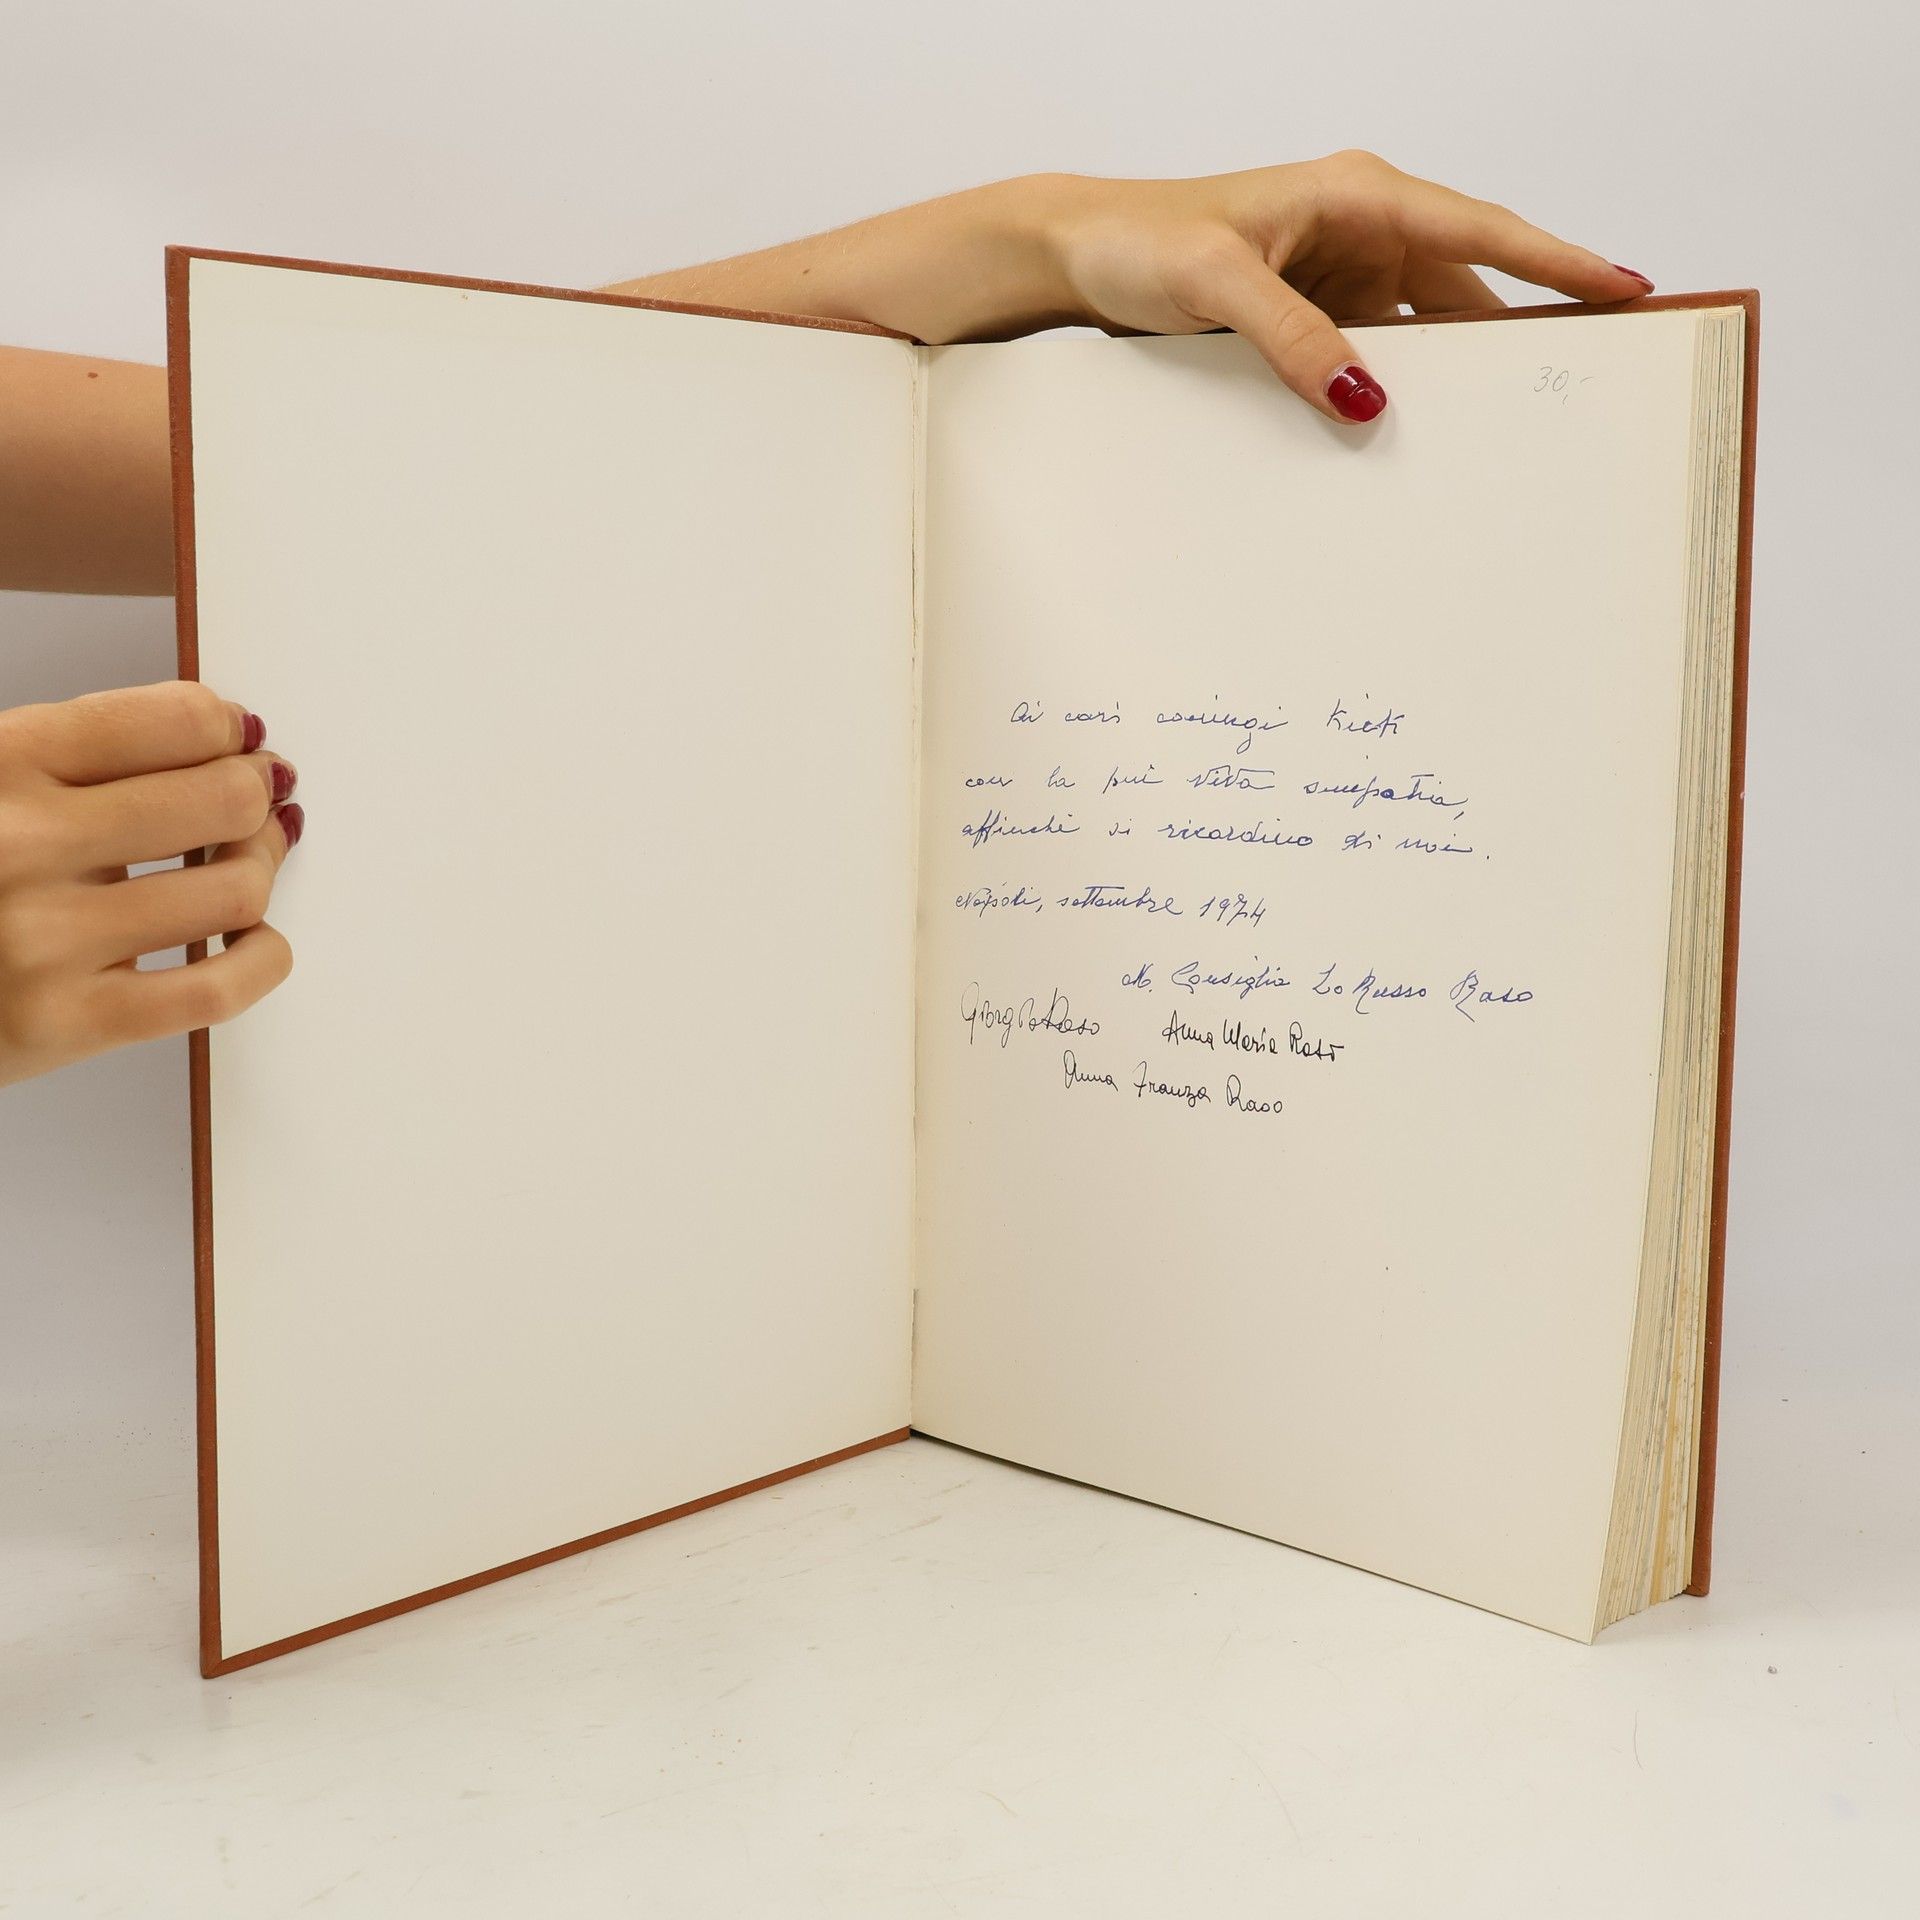 30,-
Ai cari coniugi Kick
con la più viva simpatia,
affinché si ricordino di noi.
Napoli, settembre 1974
M. Consiglia Lo Russo Raso
Giorgio Raso Anna Maria Raso
Anna Franza Raso